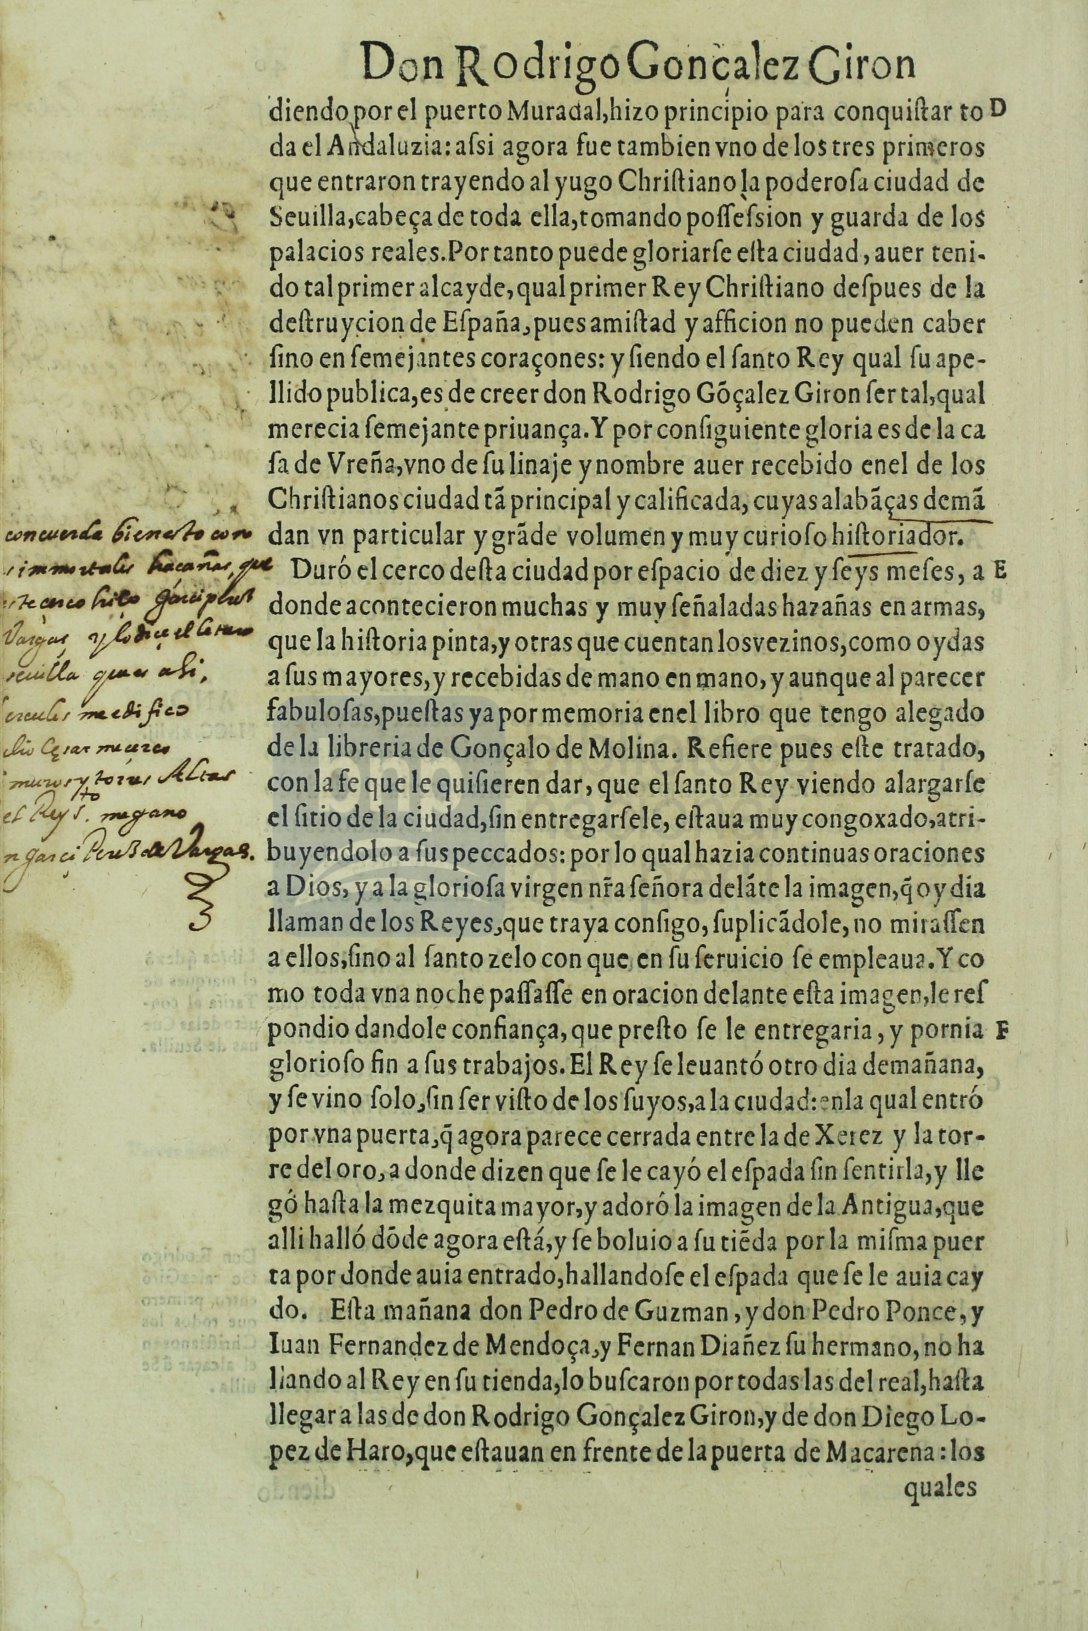 Don Rodrigo Gonçalez Giron
diendo por el puerto Muradal, hizo principio para conquiſtar to D
da el Andaluzia: aſsi agora fue tambien vno de los tres primeros
que entraron trayendo al yugo Chriſtiano la poderoſa ciudad de
Seuilla, cabeça de toda ella, tomando poſſeſsion y guarda de los
palacios reales. Por tanto puede gloriarſe eſta ciudad, auer teni-
do tal primer alcayde, qual primer Rey Chriſtiano deſpues de la
deſtruycion de Eſpaña, pues amiſtad y afficion no pueden caber
ſino en ſemejantes coraçones: y ſiendo el ſanto Rey qual ſu ape-
llido publica, es de creer don Rodrigo Gõçalez Giron ſer tal, qual
merecia ſemejante priuança. Y por conſiguiente gloria es de la ca
ſa de Vreña, vno de ſu linaje y nombre auer recebido enel de los
Chriſtianos ciudad tã principal y calificada, cuyas alabãças demã
dan vn particular y grãde volumen y muy curioſo hiſtoriador.
Duró el cerco deſta ciudad por eſpacio de diez y ſeys meſes, a E
donde acontecieron muchas y muy ſeñaladas hazañas en armas,
que la hiſtoria pinta, y otras que cuentan los vezinos, como oydas
a ſus mayores, y recebidas de mano en mano, y aunque al parecer
fabuloſas, pueſtas ya por memoria enel libro que tengo alegado
de la libreria de Gonçalo de Molina. Refiere pues eſte tratado,
con la fe que le quiſieren dar, que el ſanto Rey viendo alargarſe
el ſitio de la ciudad, ſin entregarſele, eſtaua muy congoxado, atri-
buyendolo a ſus peccados: por lo qual hazia continuas oraciones
a Dios, y a la glorioſa virgen nr̃a ſeñora delãte la imagen, q̃ oy dia
llaman de los Reyes, que traya conſigo, ſuplicãdole, no miraſſen
a ellos, ſino al ſanto zelo con que en ſu ſeruicio ſe empleaua. Y co
mo toda vna noche paſſaſſe en oracion delante eſta imagen, le reſ
pondio dandole confiança, que preſto ſe le entregaria, y pornia F
glorioſo fin a ſus trabajos. El Rey ſe leuantó otro dia demañana,
y ſe vino ſolo, ſin ſer viſto de los ſuyos, a la ciudad: enla qual entró
por vna puerta, q̃ agora parece cerrada entre la de Xerez y la tor-
re del oro, a donde dizen que ſe le cayó el eſpada ſin ſentirla, y lle
gó haſta la mezquita mayor, y adoró la imagen de la Antigua, que
alli halló dõde agora eſtá, y ſe boluio a ſu tiẽda por la miſma puer
ta por donde auia entrado, hallandoſe el eſpada que ſe le auia cay
do. Eſta mañana don Pedro de Guzman, y don Pedro Ponce, y
Iuan Fernandez de Mendoça, y Fernan Diañez ſu hermano, no ha
llando al Rey en ſu tienda, lo buſcaron por todas las del real, haſta
llegar a las de don Rodrigo Gonçalez Giron, y de don Diego Lo-
pez de Haro, que eſtauan en frente de la puerta de Macarena: los
quales
concuerda bien esto con
immortales haçañas, que
este cerco hiço garci perez
Vargas y lo diçe el letrero
seuilla que es asi,
ercules me edifico
lio Çesar me cerco
muros y torres Altas
el Rey s.to me gano
n garçi Perez de Vargas.